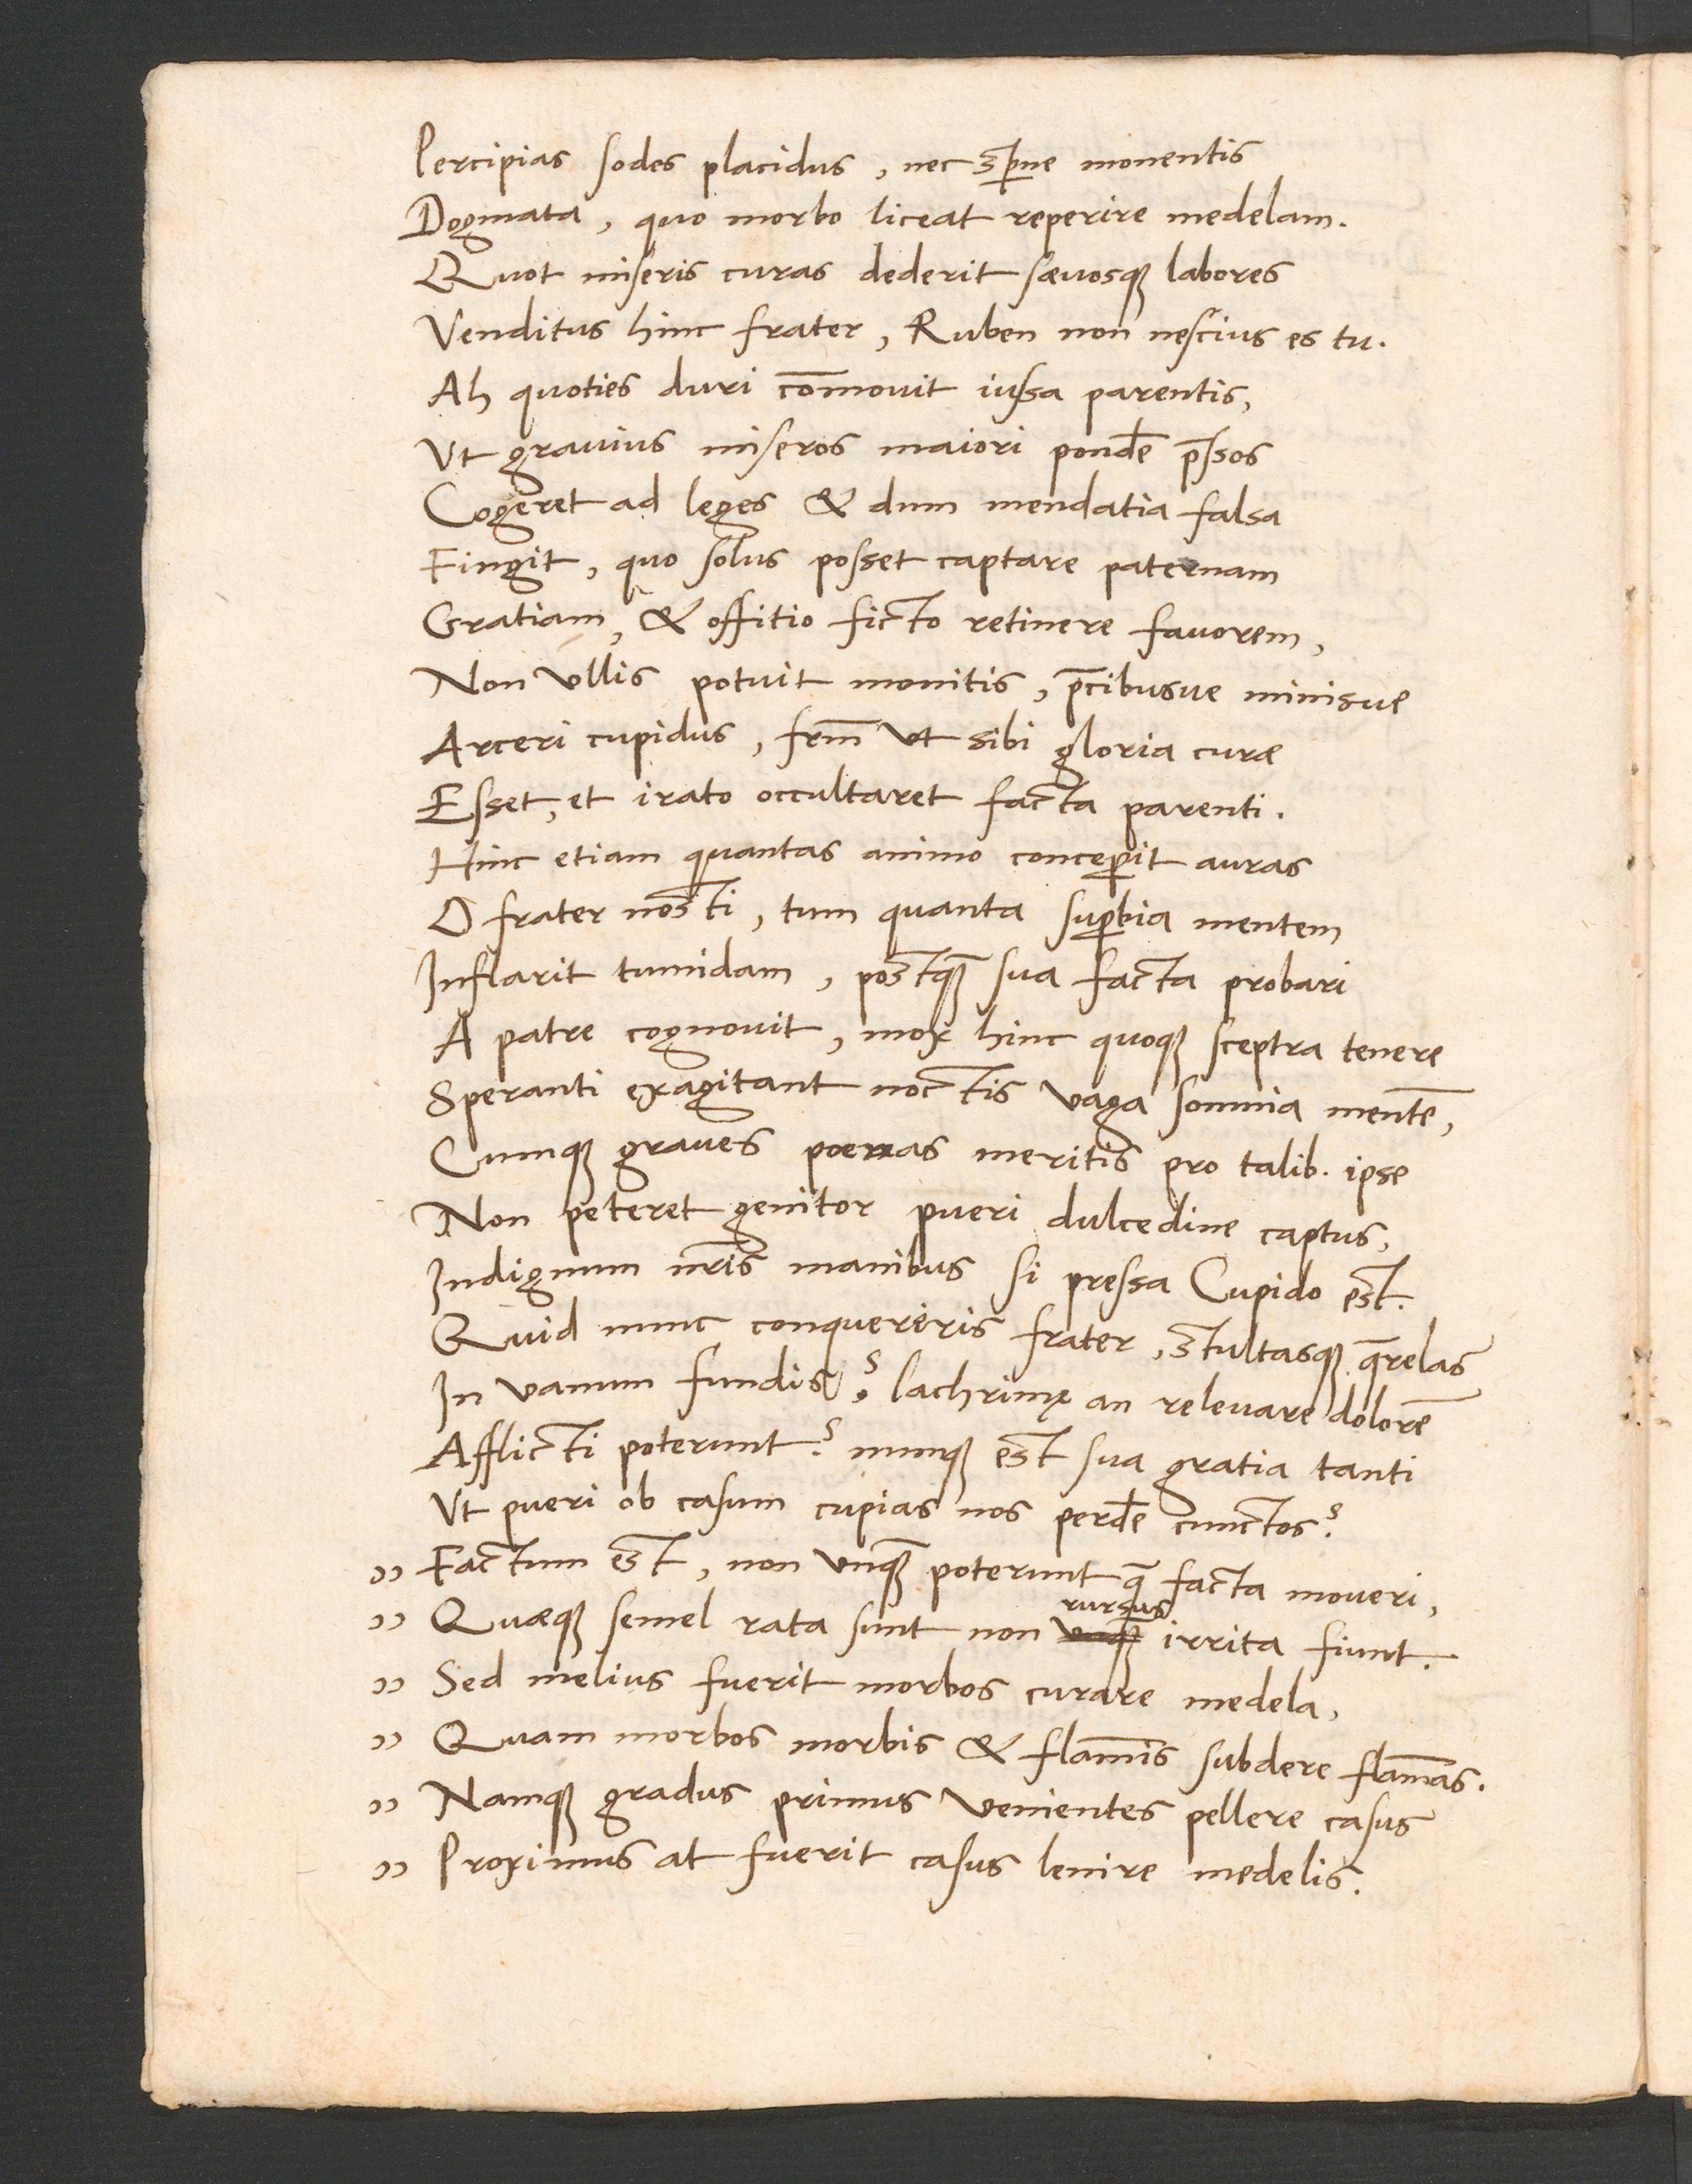 Percipias sodes placidus, nec sꝑne monentis
Dogmata, quo morbo liceat reperire medelam.
Quot miseris curas dederit sæuosqꝫ labores
Venditus hinc frater, Ruben non nescius es tu.
Ah quoties duri com̄ouit iussa parentis,
Vt grauius miseros maiori pondē p̄ssos
Cogeret ad leges & dum mendatia falsa
Fingit, quo solus posset captare paternam
Gratiam, & offitio ficto retinere fauorem,
Non vllis potuit monitis, p̄cibusue minisue
Arceri cupidus, frm̄ vt sibi gloria curæ
Esset, et irato occultaret facta parenti.
Hinc etiam quantas animo conceꝑit auras
O frater nosti, tum quanta suꝑbia mentem
Inflarit tumidam, postqꝫ̄ sua facta probari
A patre cognouit, mox hinc quoqꝫ sceptra tenere
Speranti exagitant noctis vaga somnia mentē,
Cumqꝫ graues poenas meritis pro talib. ipse
Non peteret genitor pueri dulcedine captus,
Indignum nr̄is manibus si pressa Cupido est.
Quid nunc conquereris frater, stultasqꝫ q̄relas
In vanum fundis? lachrimę an releuare dolorē
Afflicti poterunt? nunqꝫ est sua gratia tanti
Vt pueri ob casum cupias nos perdē cunctos?
„ Factum est, non vnqꝫ̄ poterunt q̄ facta moueri,
„ Quæqꝫ semel rata sunt non vnqꝫ̄ rursus irrita fiunt.
„ Sed melius fuerit morbos curare medela,
„ Quam morbos morbis & flam̄is subdere flam̄as.
„ Namqꝫ gradus primus venientes pellere casus
„ Proximus at fuerit casus lenire medelis.